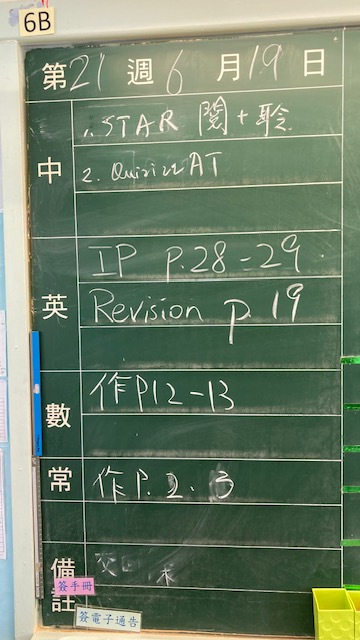 6B
第21週6月19日
中
1. STAR 閱+聆
2. Quizizz AT
英
IP p.28-29
Revision p.19
數
作P12-13
常
作P.2.3
備註
交回
簽手冊
簽電子通告